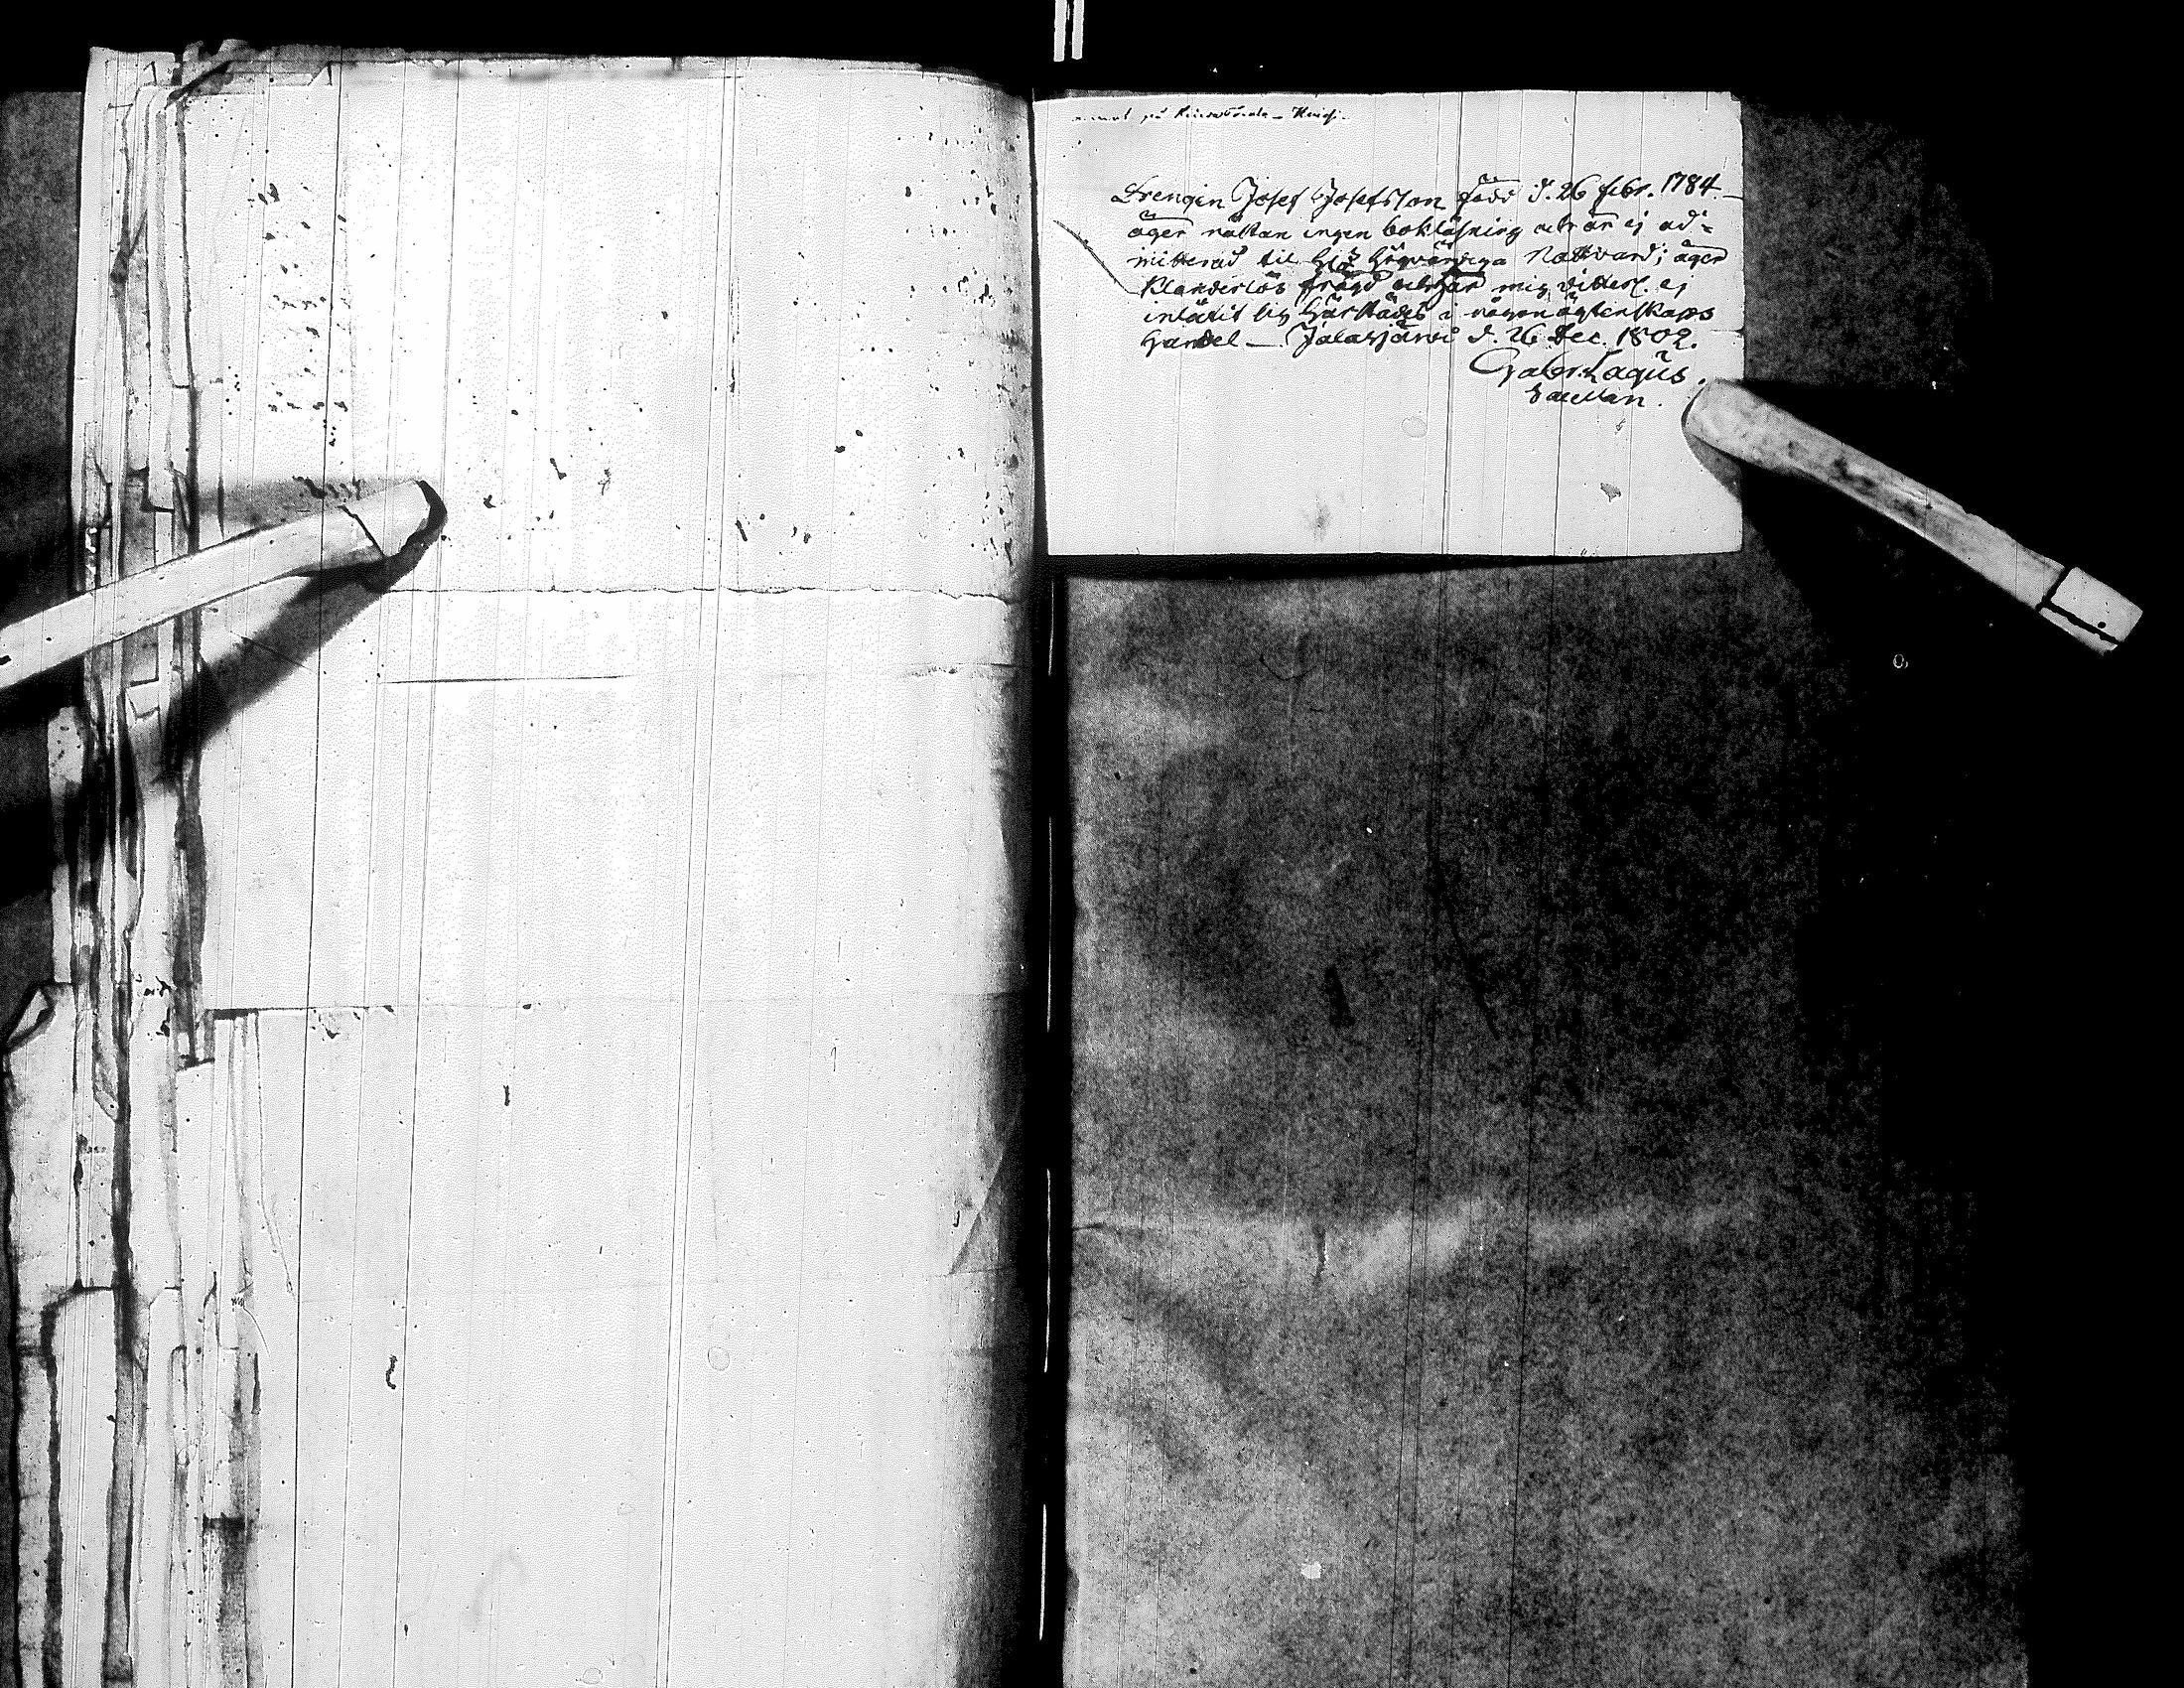 på
Drengen Josef Josefsson född d. 26 febr. 1784.
äger nästan ingen bokläsning och är ej ad-
mitterad til H. Högvärdiga Nattvard; äger
Klanderlös frägd och har mig vitterl. ej
inlåtit sig härstädes i någon ägtenskaps
handel — Jalasjärvi d. 26 Dec. 1802.
Gabr. Lagus.